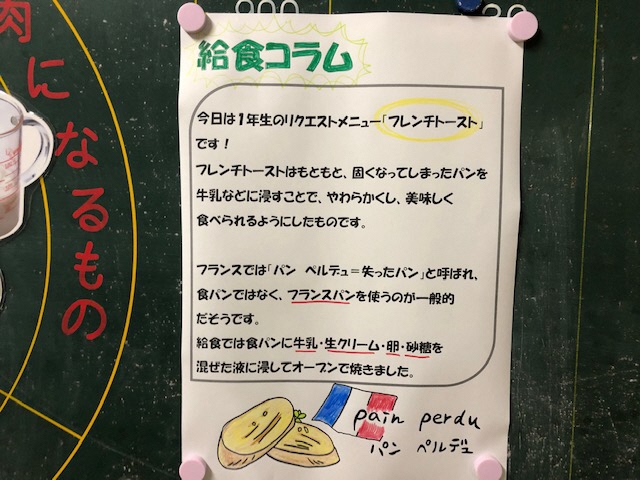 肉になるもの
給食コラム
今日は1年生のリクエストメニュー「フレンチトースト」
です！
フレンチトーストはもともと、固くなってしまったパンを
牛乳などに浸すことで、やわらかくし、美味しく
食べられるようにしたものです。
フランスでは「パン　ペルデュ＝失ったパン」と呼ばれ、
食パンではなく、フランスパンを使うのが一般的
だそうです。
給食では食パンに牛乳・生クリーム・卵・砂糖を
混ぜた液に浸してオーブンで焼きました。
pain perdu
パン ペルデュ